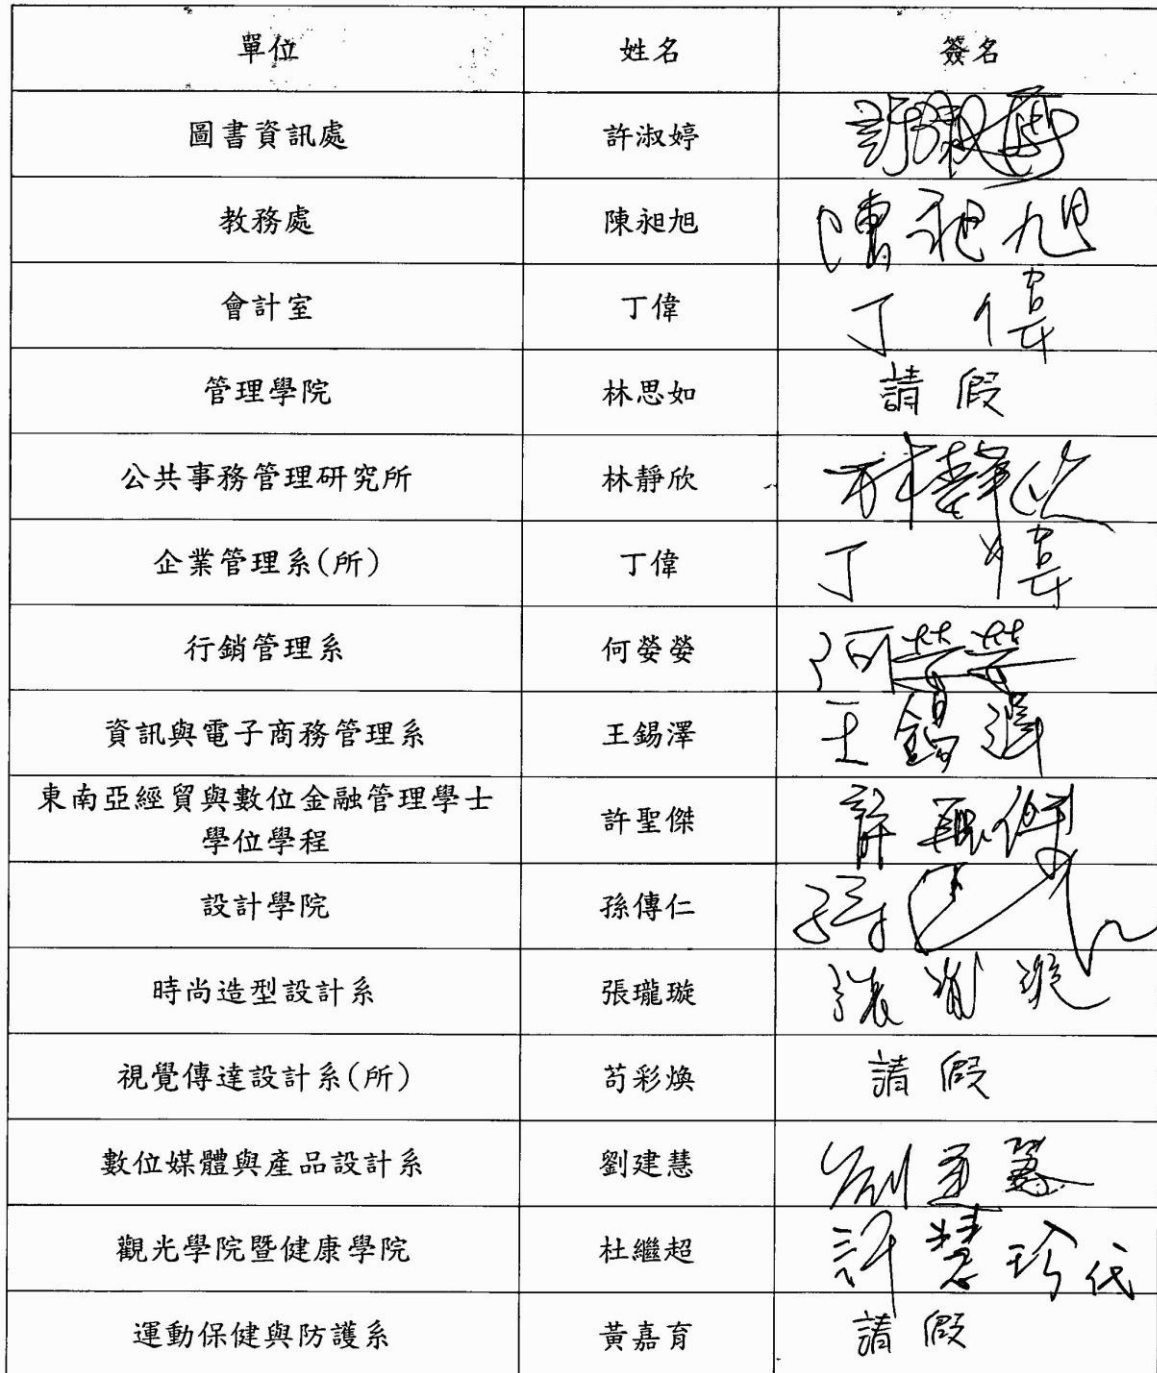 單位 姓名 簽名
圖書資訊處 許淑婷 許淑婷
教務處 陳昶旭 陳昶旭
會計室 丁偉 丁偉
管理學院 林思如 請假
公共事務管理研究所 林靜欣 林靜欣
企業管理系(所) 丁偉 丁偉
行銷管理系 何嫈嫈 何嫈嫈
資訊與電子商務管理系 王錫澤 王錫澤
東南亞經貿與數位金融管理學士
學位學程 許聖傑 許聖傑
設計學院 孫傳仁
時尚造型設計系 張瓏璇 張瓏璇
視覺傳達設計系(所) 苟彩煥 請假
數位媒體與產品設計系 劉建慧 劉建慧
觀光學院暨健康學院 杜繼超 許慧珍代
運動保健與防護系 黃嘉育 請假